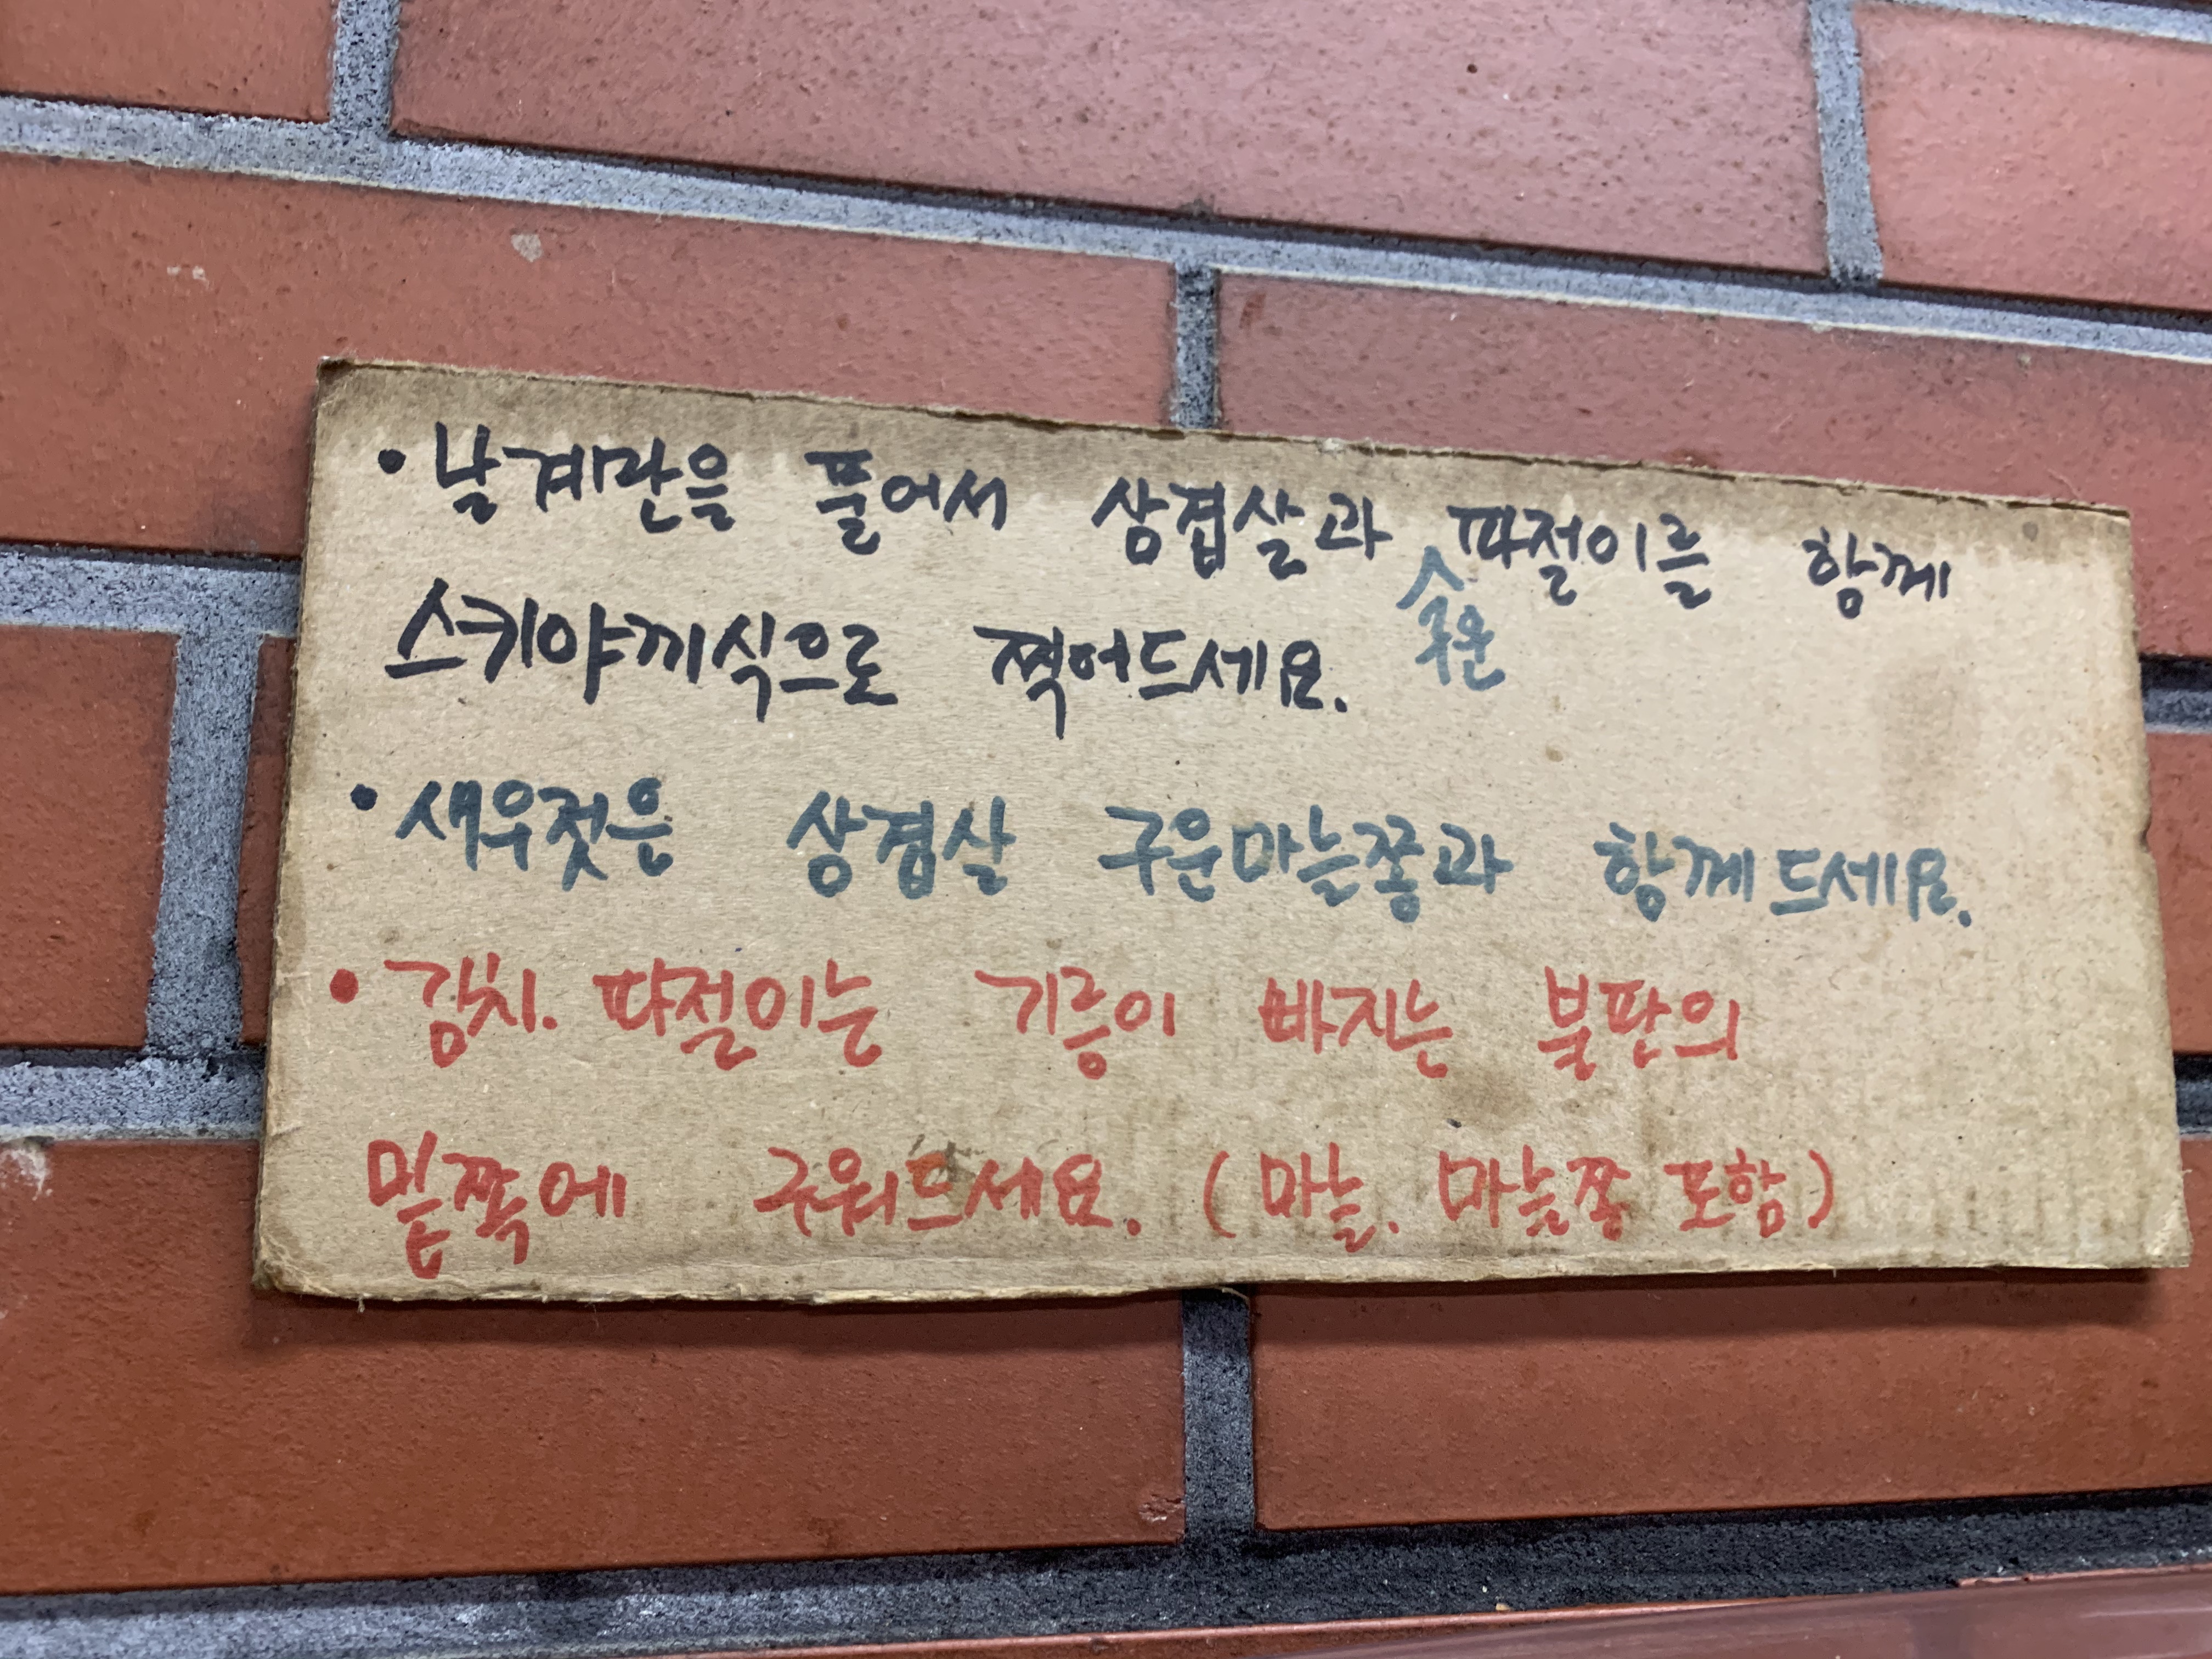 • 날계란을 풀어서 삼겹살과 구운 파절이를 함께
스키야끼식으로 찍어드세요.
• 새우젓은 삼겹살 구운마늘쫑과 함께드세요.
• 김치. 파절이는 기름이 빠지는 불판의
밑쪽에 구워드세요. (마늘. 마늘쫑 포함)